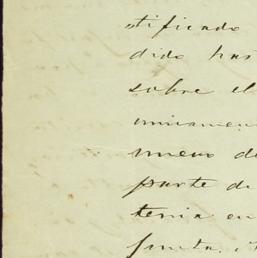 tificado
dido has
sobre el
unicamen
nuevo de
parte de
tenia en
junta.